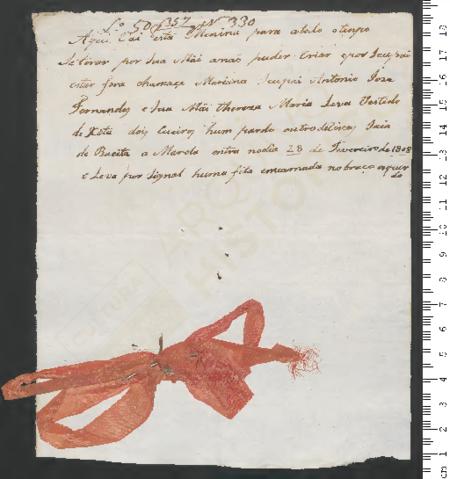 Lº 50 f 357 Nº 330
Aqui Vai esta Menina para atodo otenpo
Se tirar por Sua Mãi anaõ puder Criar epor Seupai
estar fora chamaçe Mariana Seupai Antonio Joze
Fernandes e Sua Mãi thereza Maria Leva Vestido
de Xita dois Cueiros hum pardo outro Saia
de Baeta a Marela entra nodia 28 de Fevereiro de 1808
e Leva por Signal huma fita emcarnada nobraço esquer
do
ARQUIVO
HISTÓR
CULTURA
cm 1 2 3 4 5 6 7 8 9 10 11 12 13 14 15 16 17 18